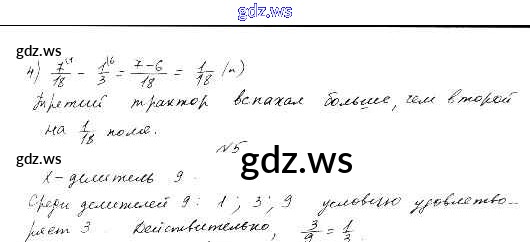 gdz.ws
gdz.ws
4) 7/18 - 1/3 = 7-6/18 = 1/18 (п)
Третий трактор вспахал больше, чем второй
на 1/18 поля.
№5
gdz.ws
gdz.ws
x - делитель 9.
Среди делителей 9: 1; 3; 9 условию удовлетво-
ряет 3. Действительно, 3/9 = 1/3.